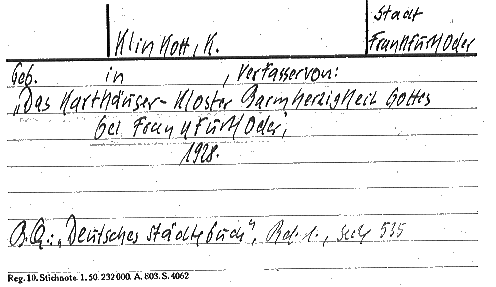 Stadt
Klinkott, K. Frankfurt/Oder
Geb. in , Verfasser von:
"Das Karthäuser-Kloster Barmherzigkeit Gottes
bei Frankfurt/Oder",
1928.
B.Q.: "Deutsches Städtebuch", Bd. 1., Seite 535
Reg. 10. Stichnote. 1. 50. 232000. A. 803. S. 4062